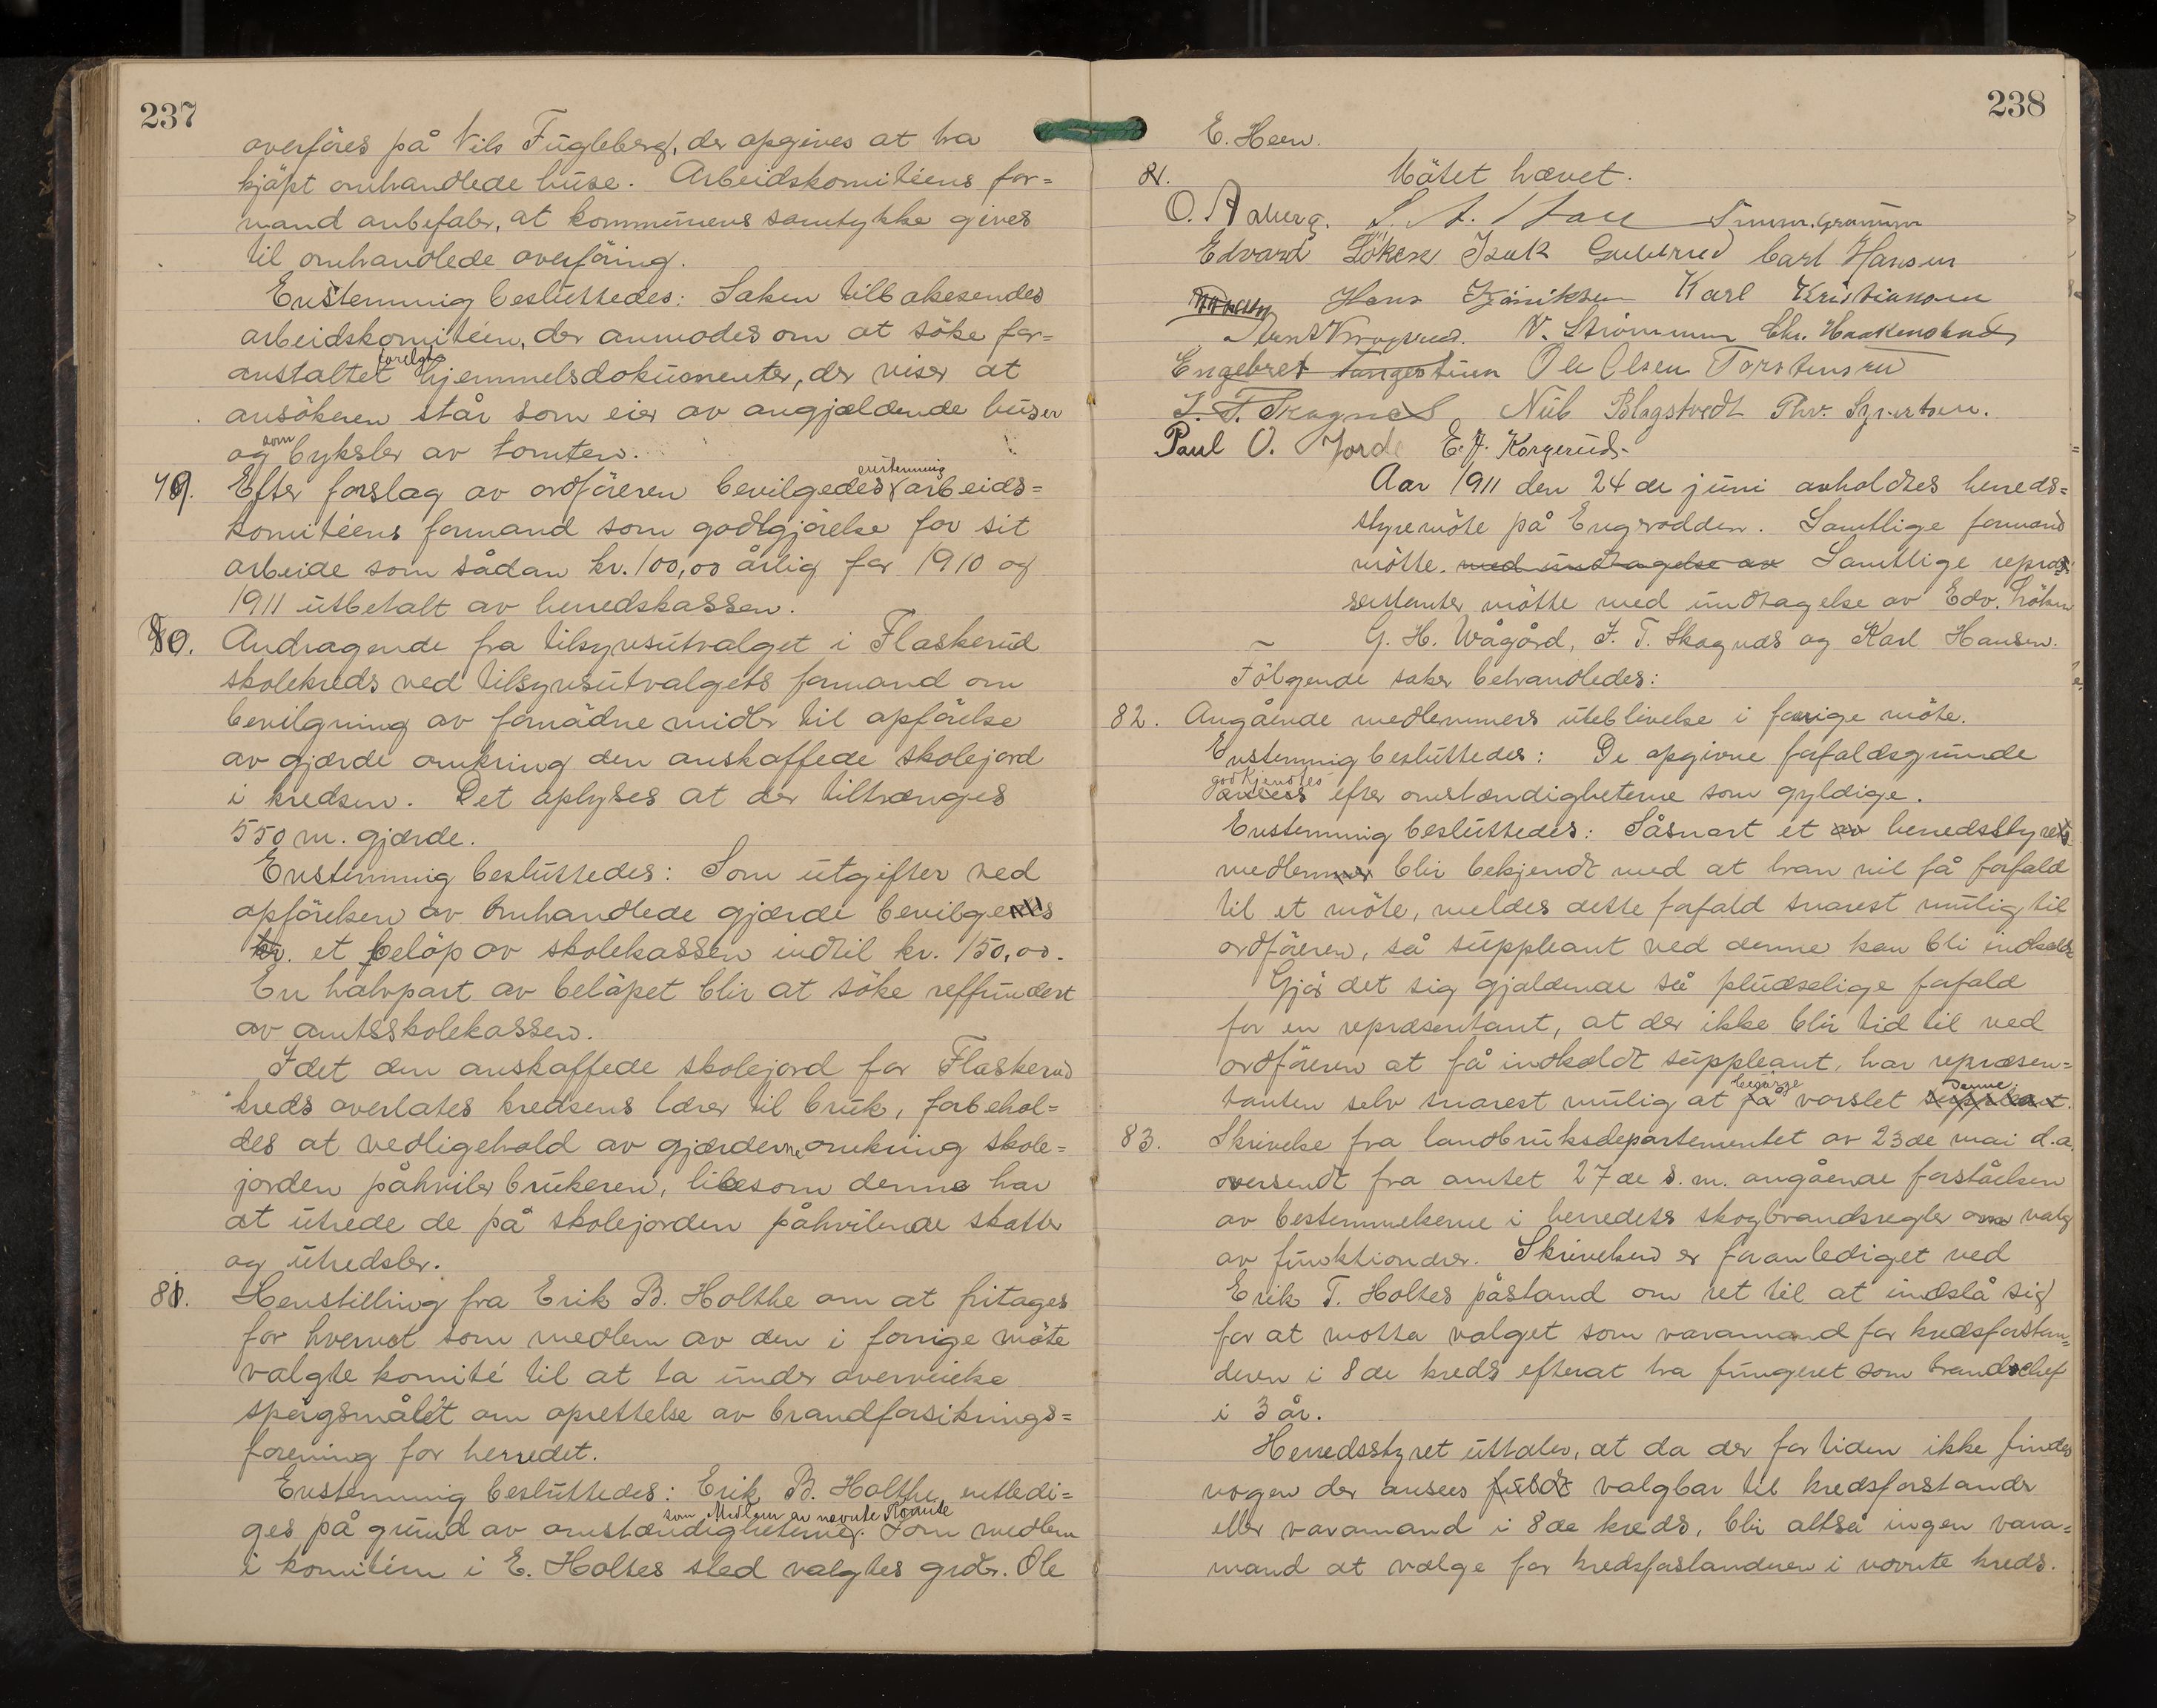 237
overföres på Nils Fugleberg, der opgives at ha
kjöpt omhandlede huse. Arbeidskomitéens for=
mand anbefaler, at kommunens samtykke gives
til omhandlede overföring.
Enstemmig besluttedes: Saken tilbakesendes
arbeidskomitéen, der anmodes om at söke for=
anstaltet forelagt hjemmelsdokumenter, der viser at
ansökeren står som eier av angjældende huser
og som byksler av tomten.
79. Efter forslag av ordföreren bevilgedes enstemmig arbeids=
komitéens formand som godtgjörelse for sit
arbeide som sådan kr. 100,00 årlig for 1910 og
1911 utbetalt av herredskassen.
80. Andragende fra tilsynsutvalget i Flaskerud
skolekreds ved tilsynsutvalgets formand om
bevilgning av fornödne midler til opförelse
av gjærde omkring den anskaffede skolejord
i kredsen. Det oplyses at der tiltrænges
550 m. gjærde.
Enstemmig besluttedes: Som utgifter ved
opförelsen av omhandlede gjærde bevilges
kr. et belöp av skolekassen indtil kr. 150,00.
En halvpart av belöpet blir at söke reffundert
av amtsskolekassen.
Idet den anskaffede skolejord for Flaskerud
kreds overlates kredsens lærer til bruk, forbehol=
des at vedligehold av gjærderne omkring skole=
jorden påhviler brukeren, likesom denne har
at utrede de på skolejorden påhvilende skatter
og utredsler.
81. Henstilling fra Erik B. Holthe om at fritages
for hvervet som medlem av den i forrige möte
valgte komité til at ta under overveielse
spörgsmålet om oprettelse av brandforsikrings=
forening for herredet.
Enstemmig besluttedes: Erik B. Holthe entledi=
ges på grund av omstændigheterne som Medlem av nævnte Komite. Som medlem
i komitéen i E. Holtes sted valgtes grdr. Ole
238
E. Heen.
81. Mötet hævet.
O. Aaberg.
Edvard Löken Isak Gulbrud Carl Hansen
Hans Karl Kristiansen
N. Strömmen Chr. Haakenstad
Engebret Tangestuen Ole Olsen Torstensrud
J. T. Skagnæs Nils Blagstvedt Thv. Syvertsen.
Paul O. Jorde E. A. Korgerud.
Aar 1911 den 24de juni avholdtes herreds=
styremöte på Engerodden. Samtlige formænd
mötte. med undtagelse av Samtlige repræ=
sentanter mötte med undtagelse av Edv. Löken
G. H. Wågård, J. T. Skagnæs og Karl Hansen.
Fölgende saker behandledes:
82. Angående medlemmers uteblivelse i forrige möte.
Enstemmig besluttedes: De opgivne forfaldsgrunde
godkjendtes ansees efter omstændigheterne som gyldige.
Enstemmig besluttedes: Såsnart et av herredsstyrets
medlemmer blir bekjendt med at han vil få forfald
til et möte, meldes dette forfald snarest mulig til
ordföreren, så suppleant ved denne kan bli indkaldt.
Gjör det sig gjældende så pludselige forfald
for en repræsentant, at der ikke blir tid til ved
ordföreren at få indkaldt suppleant, har repræsen=
tanten selv snarest mulig at begjære på varslet denne suppleant.
83. Skrivelse fra landbruksdepartementet av 23de mai d.a.
oversendt fra amtet 27de s.m. angående forståelsen
av bestemmelserne i herredets skogbrandsregler om valg
av funktionærer. Skrivelsen er foranlediget ved
Erik T. Holtes påstand om ret til at undslå sig
for at motta valget som varamand for kredsforstan=
deren i 8de kreds efterat ha fungeret som brandchef
i 3 år.
Herredsstyret uttaler, at da der for tiden ikke findes
nogen der ansees fuldt valgbar til kredsforstander
eller varamand i 8de kreds, blir altså ingen vara=
mand at vælge for kredsforstanderen i nævnte kreds.